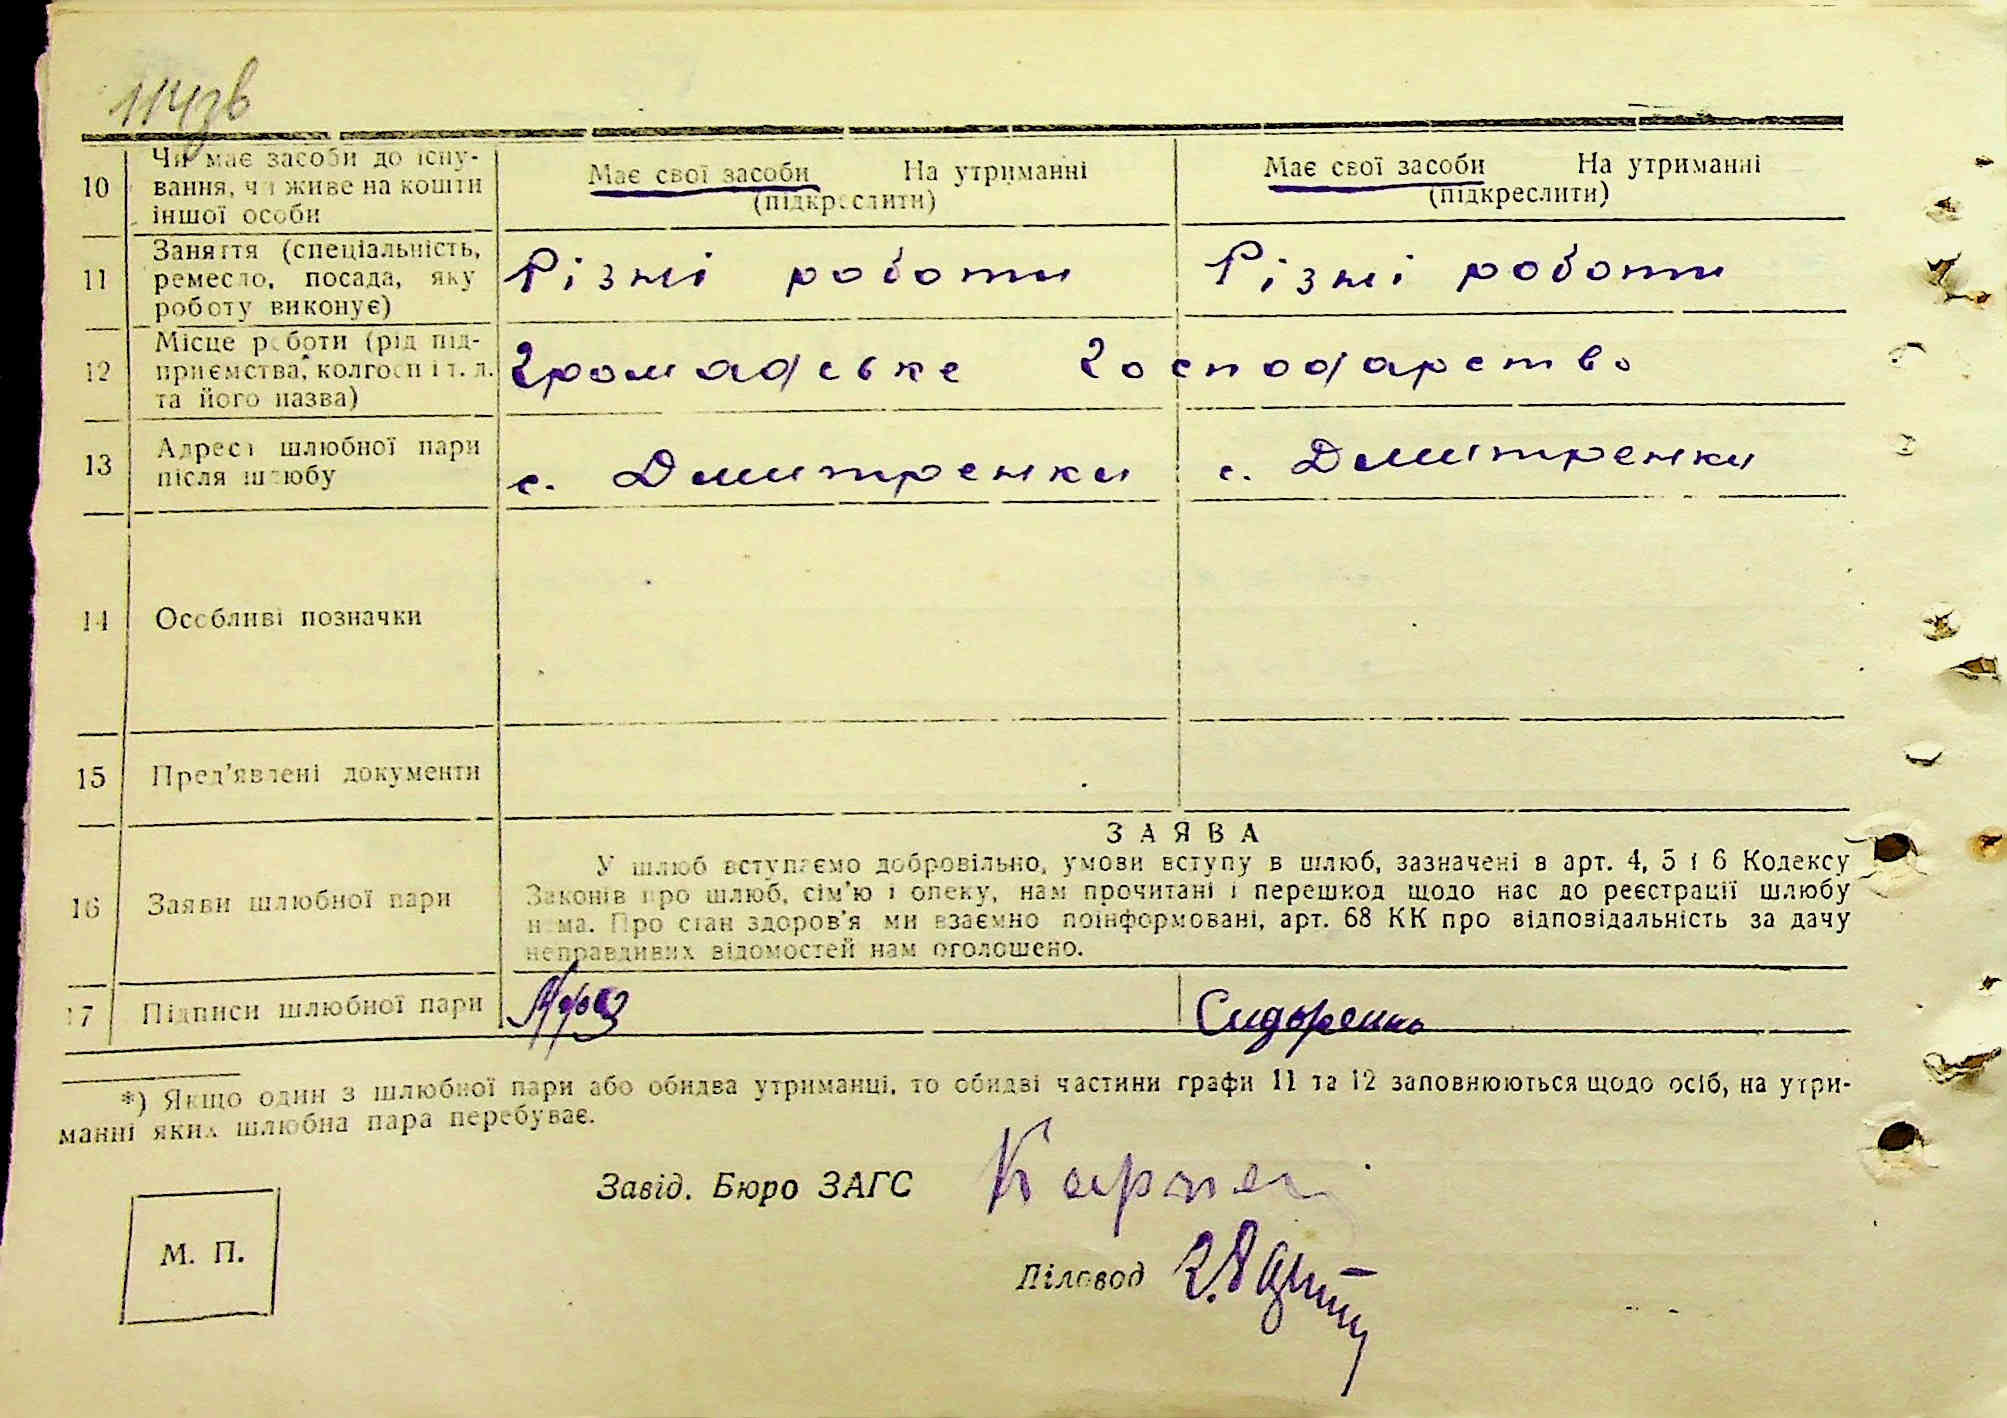 114зв
10 Чи має засоби до існу-
вання, чи живе на кошти
іншої особи
Має свої засоби На утриманні
(підкреслити)
Має свої засоби На утриманні
(підкреслити)
11 Заняття (спеціальність,
ремесло, посада, яку
роботу виконує)
Різні роботи
Різні роботи
12 Місце роботи (рід під-
приємства, колгосп і т. л.
та його назва)
Громадське Господарство
13 Адреса шлюбної пари
після шлюбу
с. Дмитренки
с. Дмитренки
14 Особливі позначки
15 Пред'явлені документи
16 Заяви шлюбної пари
ЗАЯВА
У шлюб вступаємо добровільно, умови вступу в шлюб, зазначені в арт. 4, 5 і 6 Кодексу
Законів про шлюб, сім'ю і опеку, нам прочитані і перешкод щодо нас до реєстрації шлюбу
нема. Про стан здоров'я ми взаємно поінформовані, арт. 68 КК про відповідальність за дачу
неправдивих відомостей нам оголошено.
17 Підписи шлюбної пари
Сидоренко
*) Якщо один з шлюбної пари або обидва утриманці, то обидві частини графи 11 та 12 заповнюються щодо осіб, на утри-
манні яких шлюбна пара перебуває.
Завід. Бюро ЗАГС
Діловод
М. П.